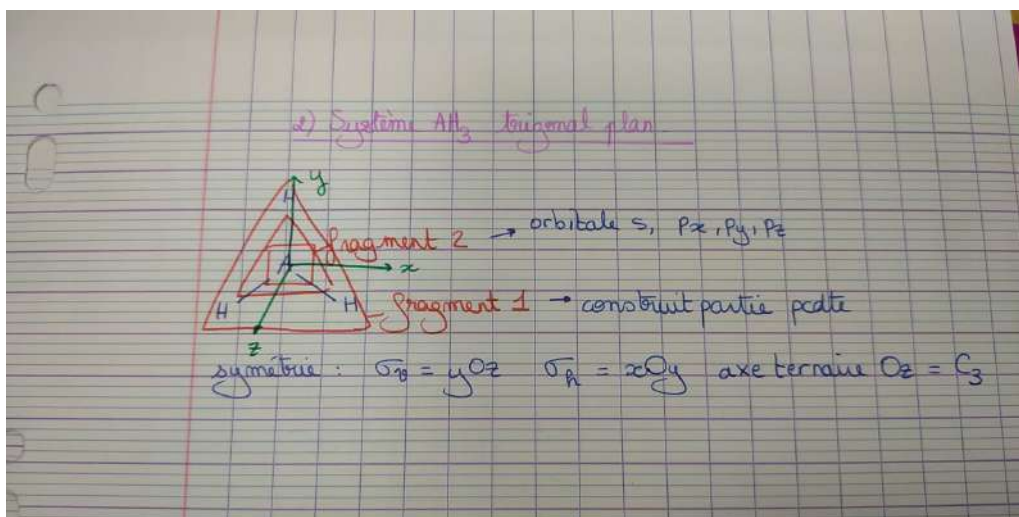 2) Système AH₃ trigonal plan
y
H
fragment 2 → orbitale s, px, py, pz
A
x
H H
fragment 1 → construit partie pcdte
z
symétrie : σv = yOz σh = xOy axe ternaire Oz = C₃